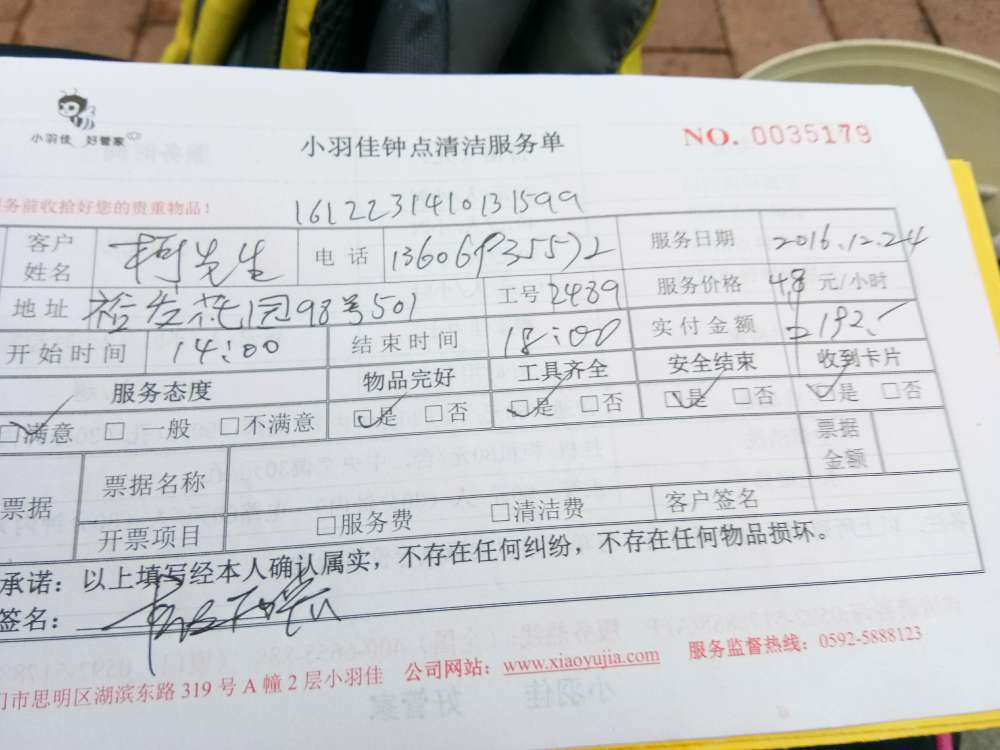 小羽佳 好管家
小羽佳钟点清洁服务单
NO. 0035179
务前收拾好您的贵重物品!
161223141013 1599
客户姓名 柯先生 电话 13606935572 服务日期 2016.12.24
地址 裕发花园98号501 工号 2489 服务价格 48元/小时
开始时间 14:00 结束时间 18:00 实付金额 =192.-
服务态度 物品完好 工具齐全 安全结束 收到卡片
☑满意 □一般 □不满意 ☑是 □否 ☑是 □否 ☑是 □否 ☑是 □否
票据 票据名称 票据金额
开票项目 □服务费 □清洁费 客户签名
承诺：以上填写经本人确认属实，不存在任何纠纷，不存在任何物品损坏。
签名：
门市思明区湖滨东路 319 号 A 幢 2 层小羽佳 公司网站：www.xiaoyujia.com 服务监督热线：0592-5888123